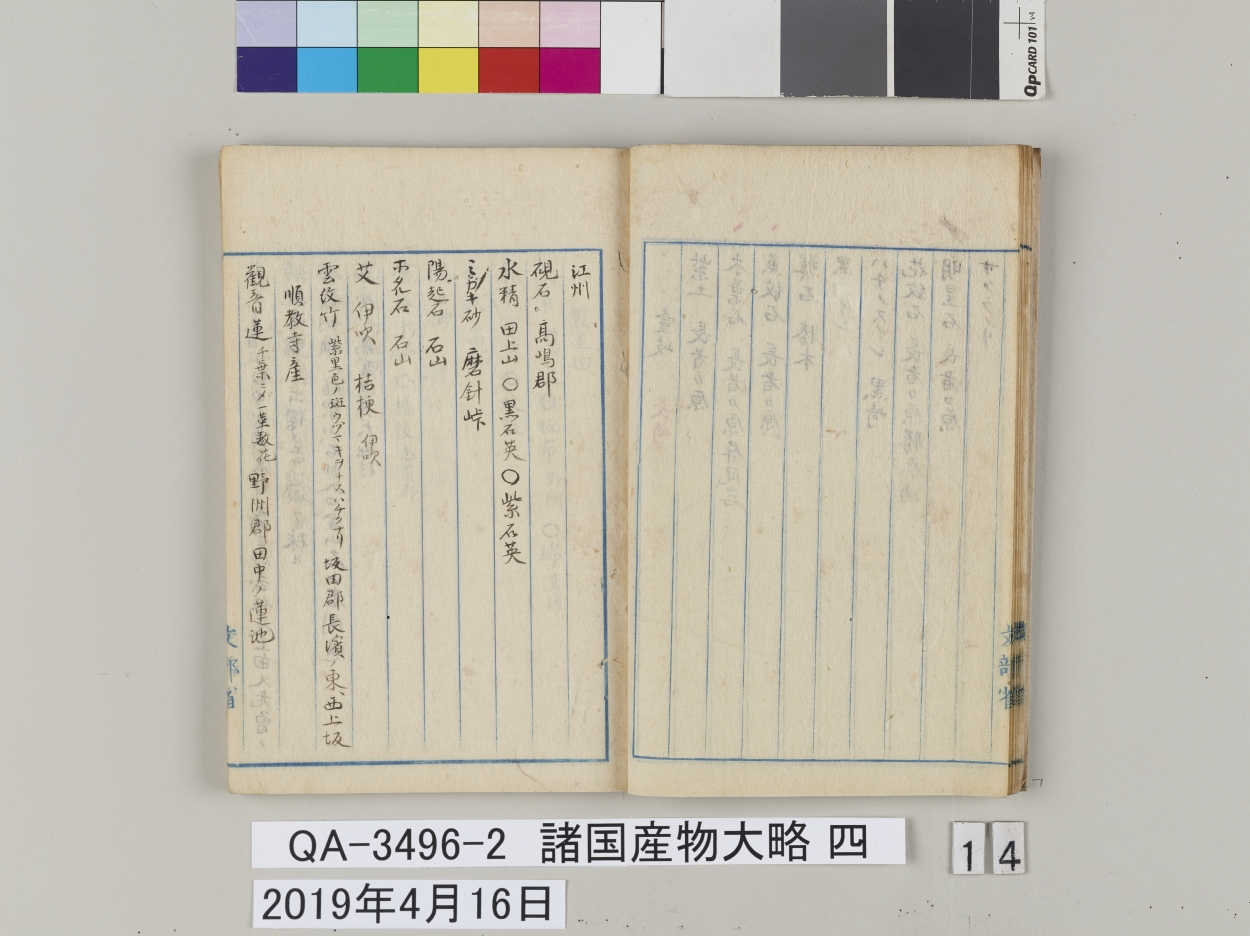 江州
硯石 高嶋郡
水精 田上山 〇黒石英 〇紫石英
ミガキ砂 磨針峠
陽起石 石山
ホタル石 石山
艾 伊吹 桔梗 伊吹
雲紋竹 紫黒色ノ斑ウヅマキヲナス 坂田郡長濱ノ東、西上坂
順教寺産
觀音蓮 千葉ニメ一莖数花 野洲郡田中ノ蓮池
文部省
文部省
QA-3496-2 諸国産物大略 四
14
2019年4月16日
QpCARD 101 v4